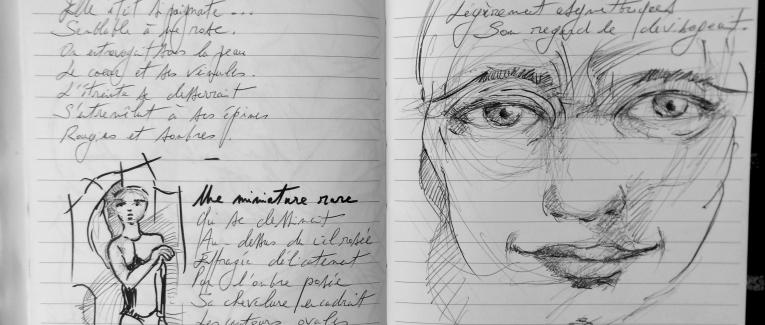 Elle était si
Semblable à une rose.
On entrevoyait sous la peau
Le coeur et ses veinules.
L'étreinte se desserrait
S'entremêlant à ses épines
Rouges et sombres.
Une miniature rare
Qui se dessinait
Au-dessus du
délicatement
Par l'ombre posée
Sa chevelure encadrait
Les contours ovales
Légèrement asymétriques
Son regard le dévisageait.